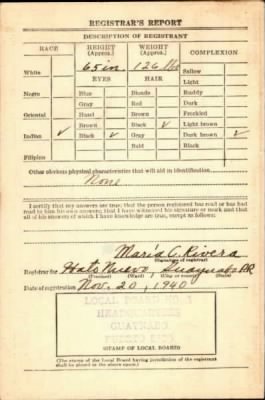 REGISTRAR'S REPORT
DESCRIPTION OF REGISTRANT
RACE HEIGHT (Approx.) WEIGHT (Approx.) COMPLEXION
White 65 in. 126 lbs Sallow
EYES HAIR Light
Negro Blue Blonde Ruddy
Gray Red Dark
Oriental Hazel Brown Freckled
Brown Black ✓ Light brown
Indian ✓ Black ✓ Gray Dark brown ✓
Bald Black
Filipino
Other obvious physical characteristics that will aid in identification
None
I certify that my answers are true; that the person registered has read or has had read to him his own answers; that I have witnessed his signature or mark and that all of his answers of which I have knowledge are true, except as follows:
Maria C. Rivera
(Signature of registrar)
Registrar for Hato Nuevo, Guaynabo P.R.
(Precinct) (Ward) (City or county) (State)
Date of registration Nov. 20, 1940
LOCAL BOARD NO. 1
HEADQUARTERS
GUAYNABO
PUERTO RICO
STAMP OF LOCAL BOARD
(The stamp of the Local Board having jurisdiction of the registrant
shall be placed in the above space.)